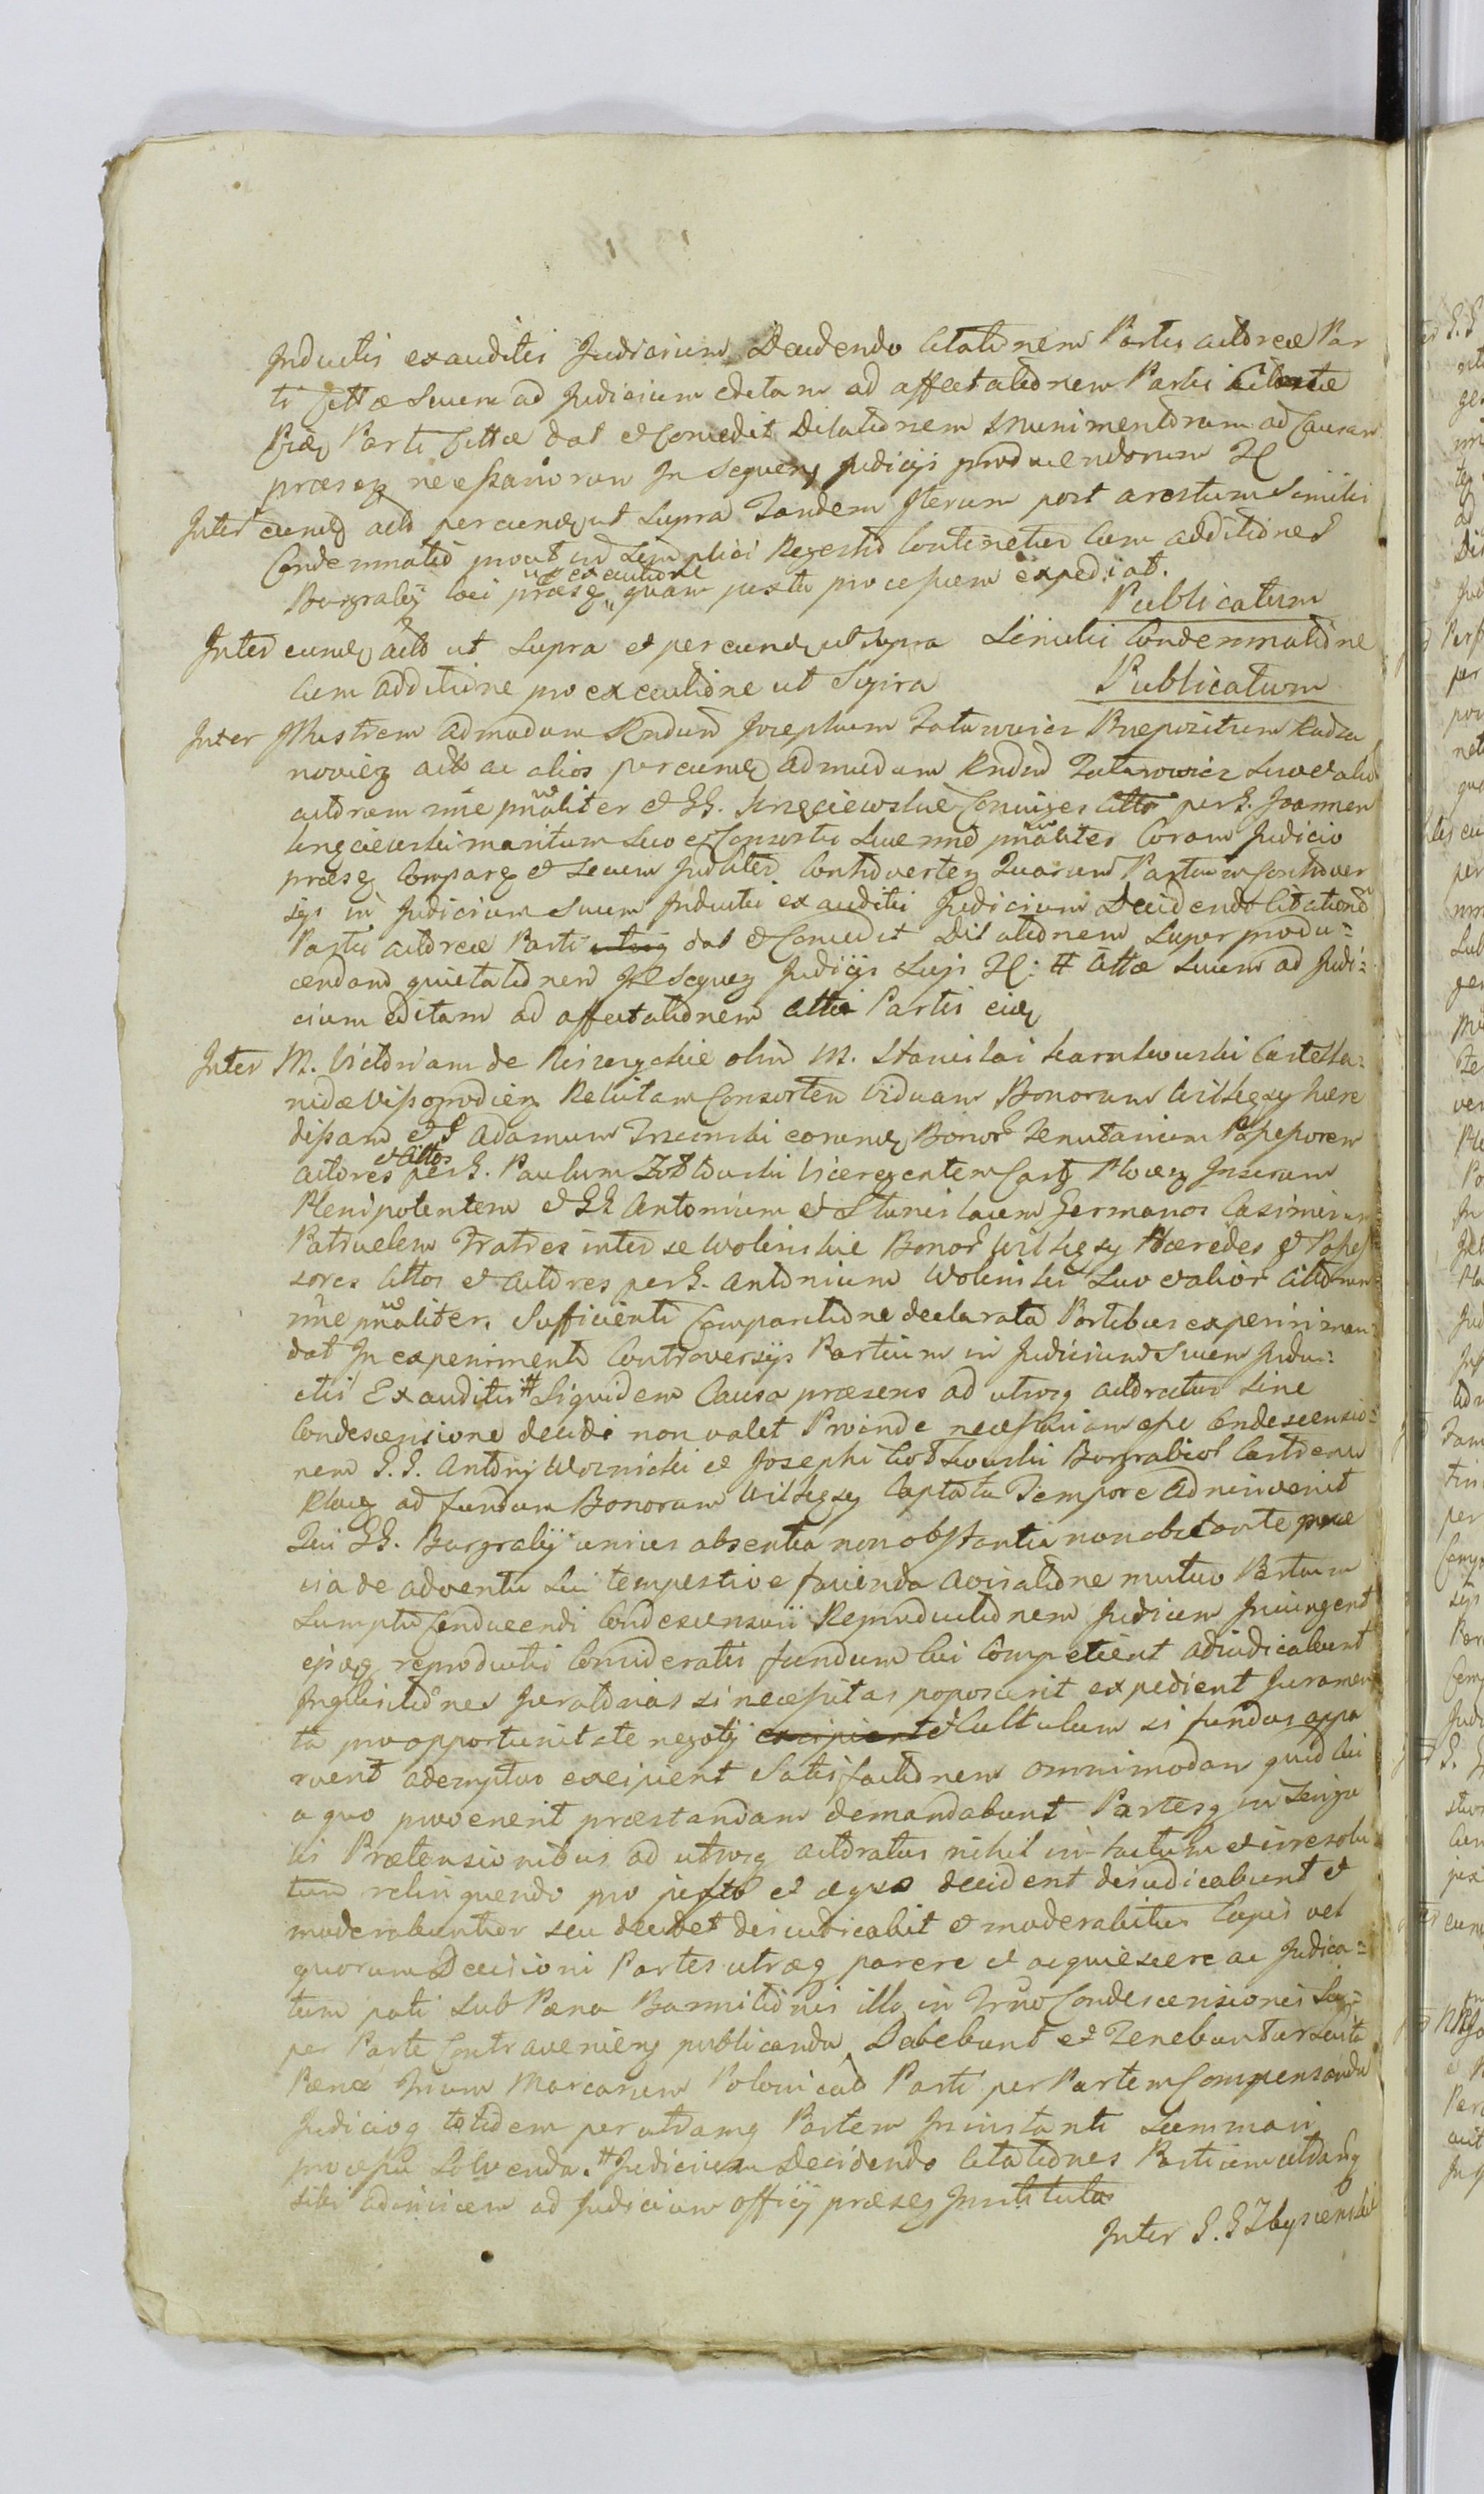 Inductis exauditis Judicium Decidendo Citationem Partis actoreæ Par
ti Cittæ Suum ad Judicium editam ad affectationem Partis Citatæ
Parti Cittæ dat et Concedit Dilationem Munimentorum ad Causam
præseñ necessariorum In Sequen Judicijs producendorum
Inter eund act per eund ut Supra Tandem Iterum post arestum Simili
Condemnatio prout in Simplici Regestro Continetur Cum additione
Burgrabij loci præseñ pro executione quam juxta processum expediat.
Publicatum
Inter eund act ut Supra et per eund ut supra Simili Condemnatione
Cum additione pro executione ut Supra Publicatum
Inter Illustrem admodum Rndum Josephum Præpozitum Radza
novieñ act ac alios per eund admodum Rndum Suo et alior
actorum nõe pnaliter et GG. Conjuges Cittos per G. Joannem
maritum Suo et Consortis Suæ nõe pnaliter Coram Judicio
præseñ Compareñ et Secum Controverteñ Quarum Partium Controver
sijs in Judicium Suum Inductis exauditis Judicium Decidendo Citationem
Partis actoreæ Parti dat et Concedit Dilationem Super produ=
cendam quietationem In Sequeñ Judicijs Suis # Cittæ Suum ad Judi=
cium editam ad affectationem Cittæ Partis eiusd
Inter M. Victoriam de olim M. Stanislai Karnkowski Castella=
nidæ Vissogrodieñ Relictam Consortem Viduam Bonorum hære
dissam et G Adamum Trzcinski eorund Bonor Tenutarium Possessorem
actores et Cittos per G. Paulum Viceregentem Castr Ploceñ Juratum
Plenipotentem et GG Antonium et Stanislaum Germanos Casimirum
Patruelem Fratres inter se Wolinskie Bonor Hæredes et Posses
sores Cittos et actores per G. Antonium Wolinski Suo et alior Cittorum
nõe pnaliter. Sufficienti Comparitione declarata Partibus experiri man=
dat In experimento Controversijs Partium in Judicium Suum Indu=
ctis Exauditis # Siquidem Causa præsens ad utrosq actoratus Sine
Condescensione decidi non valet Proinde necessariam esse Condescensio=
nem G.G. Antonij Woznicki et Josephi Burgrabior Castrens
Ploceñ ad fundum Bonorum Captato Tempore adinvenit
Qui GG. Burgrabij unius absentia non obstantia non obstante præ
via de adventu Sui tempestive facienda avisatione mutuo Partium
Sumptu Conducendi Condescensuri Reproductionem Judicium Iniungent
eisq reproductis Consideratis fundum Cui Competierit adiudicabunt
Inquisitiones Juratorias si necessitas poposcerit expedient Juramen
ta pro opportunitate negotij Calculum si fundus appa
ruerit ademptus excipient Satisfactionem omnimodam quid Cui
a quo provenerit præstandam demandabunt Partesq in Singu
lis Prætensionibus ad utrosq actoratus nihil intactum et irresolu
tum relinquendo pro justo et æquo decident deiudicabunt et
moderabuntur seu decidet deiudicabit et moderabitur Cuius vel
quorum Decisioni Partes utræq parere et acquiescere ac Judica=
tum pati Sub Pæna Bannitionis illo in Trno Condescensionis Su=
per Parte Contravenieñ publicanda Debebunt et Tenebuntur
Pæna Trium Marcarum Polonical Parti per Partem Compensanda
Judicioq totidem per utramq Partem In instanti Summari
processu Solvenda. # Judicium Decidendo Citationes Partium utramq
sibi adinvicem ad Judicium Officij præseñ Institutas
Inter G. G